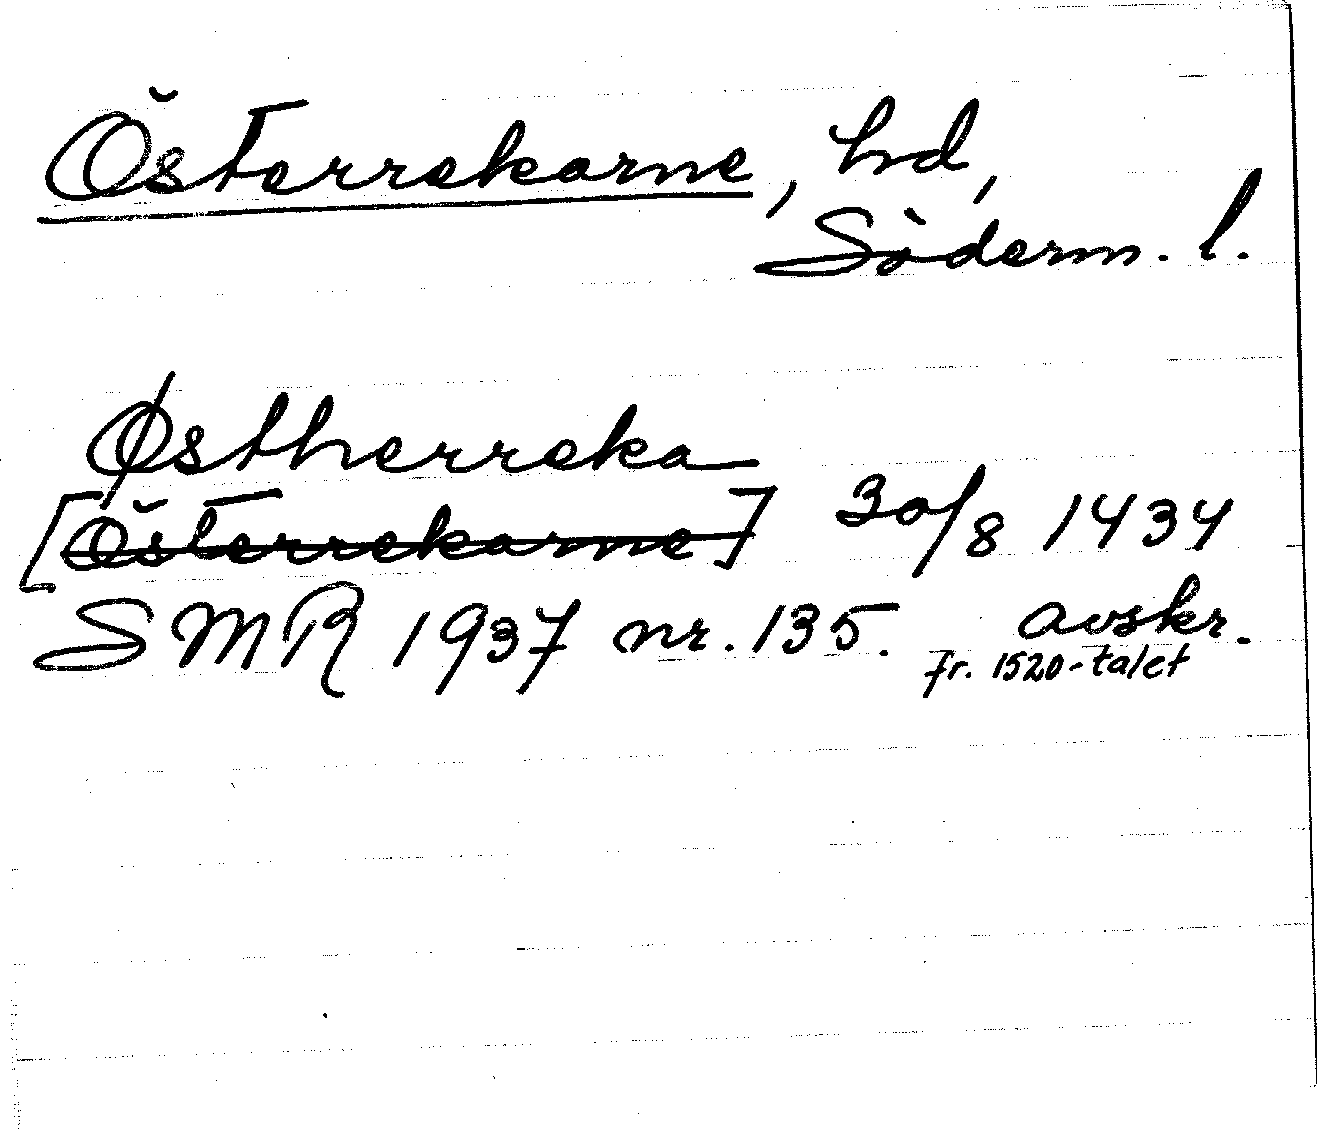 Österrekarne, hd,
Söderm. l.
Østherreka
[Österrekarne] 30/8 1434
SMR 1937 nr. 135. avskr.
fr. 1520-talet